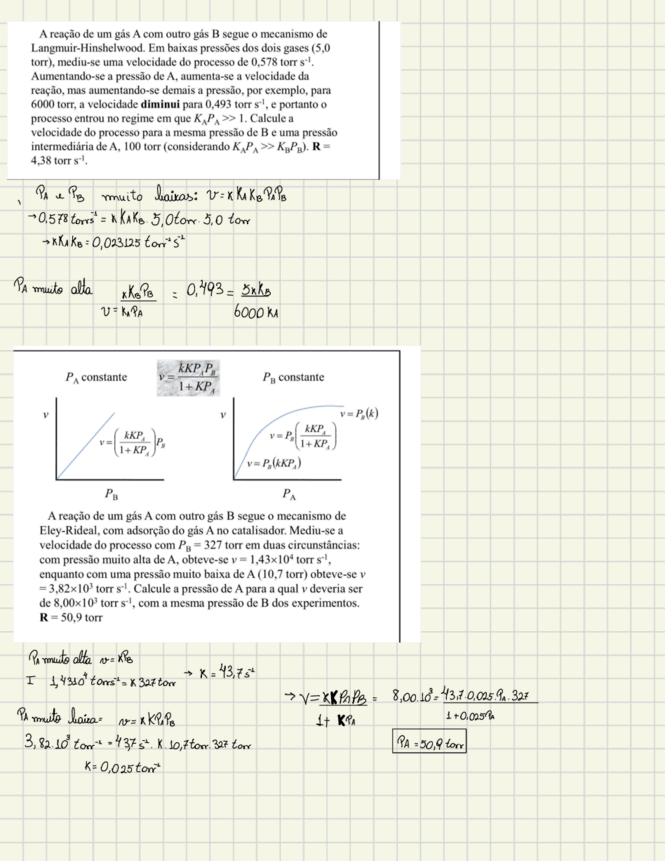 A reação de um gás A com outro gás B segue o mecanismo de
Langmuir-Hinshelwood. Em baixas pressões dos dois gases (5,0
torr), mediu-se uma velocidade do processo de 0,578 torr s⁻¹.
Aumentando-se a pressão de A, aumenta-se a velocidade da
reação, mas aumentando-se demais a pressão, por exemplo, para
6000 torr, a velocidade diminui para 0,493 torr s⁻¹, e portanto o
processo entrou no regime em que K_A P_A >> 1. Calcule a
velocidade do processo para a mesma pressão de B e uma pressão
intermediária de A, 100 torr (considerando K_A P_A >> K_B P_B). R =
4,38 torr s⁻¹.
P_A e P_B muito baixas: v = k K_A K_B P_A P_B
→ 0,578 torr s⁻¹ = k K_A K_B . 5,0 torr . 5,0 torr
→ k K_A K_B = 0,023125 torr⁻¹ s⁻¹
P_A muito alta k K_B P_B / v = K_A P_A = 0,493 = 5 k K_B / 6000 K_A
P_A constante
v = kKP_A P_B / 1 + KP_A
P_B constante
v
v = (kKP_A / 1 + KP_A) P_B
P_B
v
v = P_B (k)
v = P_B (kKP_A / 1 + KP_A)
v = P_B (kKP_A)
P_A
A reação de um gás A com outro gás B segue o mecanismo de
Eley-Rideal, com adsorção do gás A no catalisador. Mediu-se a
velocidade do processo com P_B = 327 torr em duas circunstâncias:
com pressão muito alta de A, obteve-se v = 1,43×10⁴ torr s⁻¹,
enquanto com uma pressão muito baixa de A (10,7 torr) obteve-se v
= 3,82×10³ torr s⁻¹. Calcule a pressão de A para a qual v deveria ser
de 8,00×10³ torr s⁻¹, com a mesma pressão de B dos experimentos.
R = 50,9 torr
P_A muito alta v = k P_B
I 1,43 10⁴ torr s⁻¹ = k 327 torr → k = 43,7 s⁻¹
P_A muito baixa = v = k K P_A P_B
3,82 . 10³ torr⁻¹ = 43,7 s⁻¹ . K . 10,7 torr . 327 torr
K = 0,025 torr⁻¹
→ v = k K P_A P_B / 1 + K P_A = 8,00 . 10³ = 43,7 . 0,025 . P_A . 327 / 1 + 0,025 P_A
P_A = 50,9 torr